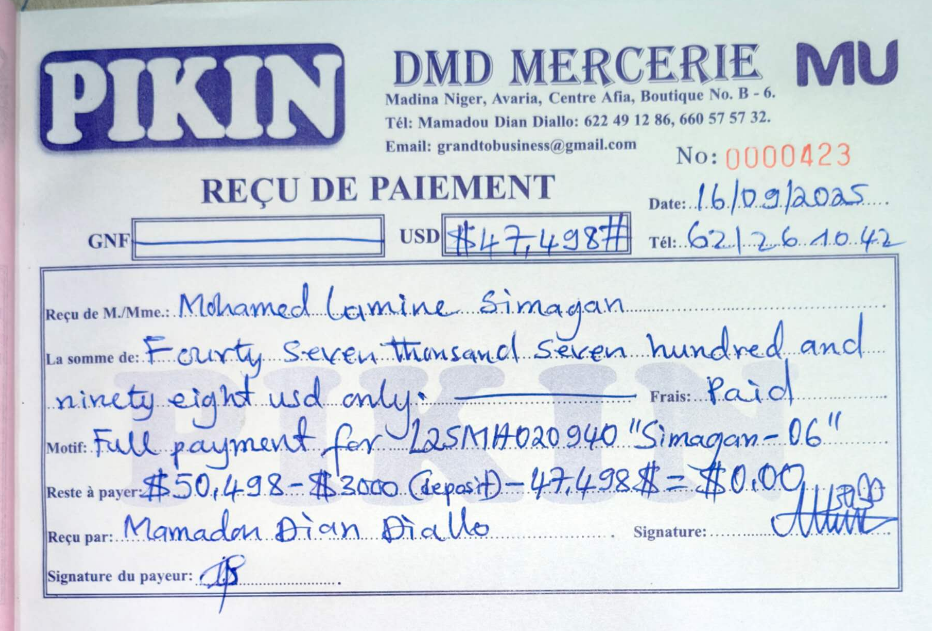 PIKIN
DMD MERCERIE MU
Madina Niger, Avaria, Centre Afia, Boutique No. B - 6.
Tél: Mamadou Dian Diallo: 622 49 12 86, 660 57 57 32.
Email: grandtobusiness@gmail.com
No: 0000423
REÇU DE PAIEMENT
Date: 16/09/2025
GNF USD $47,498#
Tél: 621 26 10 42
Reçu de M./Mme.: Mohamed Lamine Simagan
La somme de: Fourty Seven thousand Seven hundred and
ninety eight usd only. Frais: Paid
Motif: Full payment for L25MA020940 "Simagan-06"
Reste à payer: $50,498-$3000 (deposit)-47,498$=$0.00
Reçu par: Mamadou Dian Diallo Signature:
Signature du payeur:
PIKIN